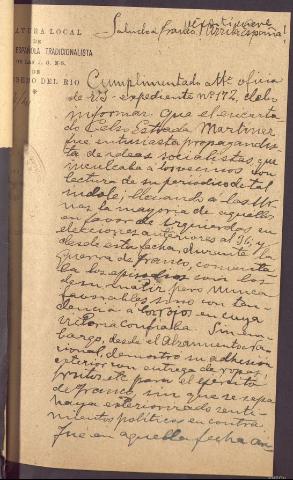 Saludo a Franco. ¡Arriba España!
ATURA LOCAL
DE
ESPAÑOLA TRADICIONALISTA
DE LAS J. O. N-S.
DE
DEL RIO
Cumplimentado Atº. oficio
de V.S. expediente nº 172, debo
informar: Que el encarta
do Celso Estrada Martinez
fue entusiasta propagandis
ta de ideas socialistas, que
inculcaba a los vecinos con
lectura de su periodico de tal
indole; llevando a las Ur
nas la mayoria de aquellos
en favor de izquierdas en
elecciones anteriores al 36, y
desde esta fecha, durante la
Guerra de Franco, comenta
ba los con los
de su matiz pero nunca
favorables sino con ten
dencia a los rojos en cuya
victoria confiaba. Sin em
bargo desde el Alzamiento Na
cional, demostro su adhesion
exterior con entrega de ropas,
frutos etc para el ejército
de Franco, sin que se sepa
haya exteriorizado senti
mientos politicos en contra.
Fue en aquella fecha